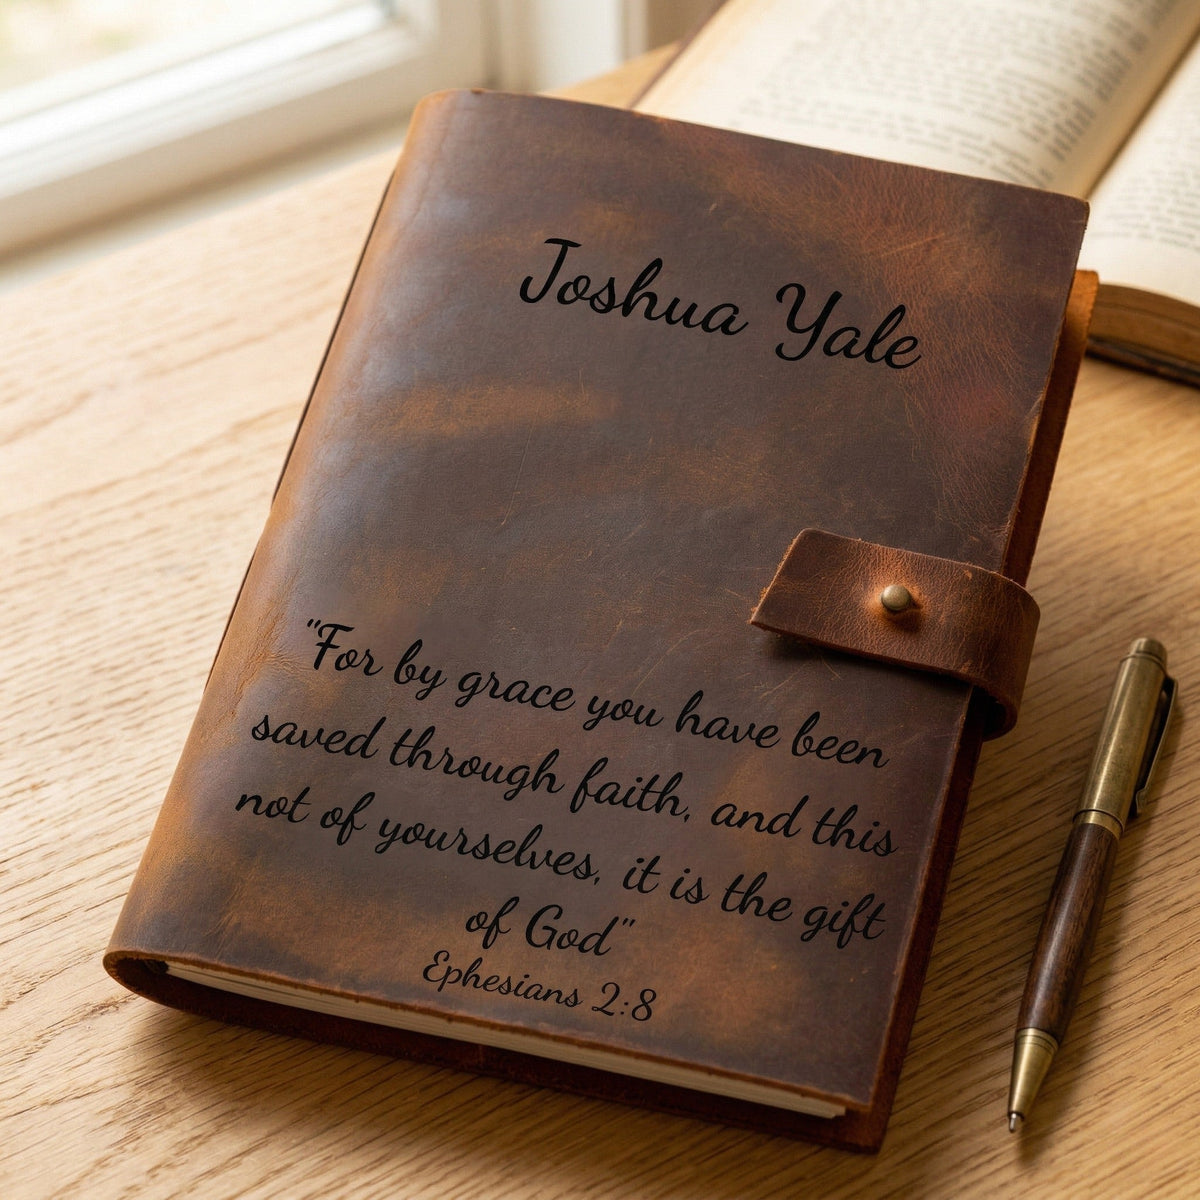 Joshua Yale
"For by grace you have been
saved through faith, and this
not of yourselves, it is the gift
of God"
Ephesians 2:8